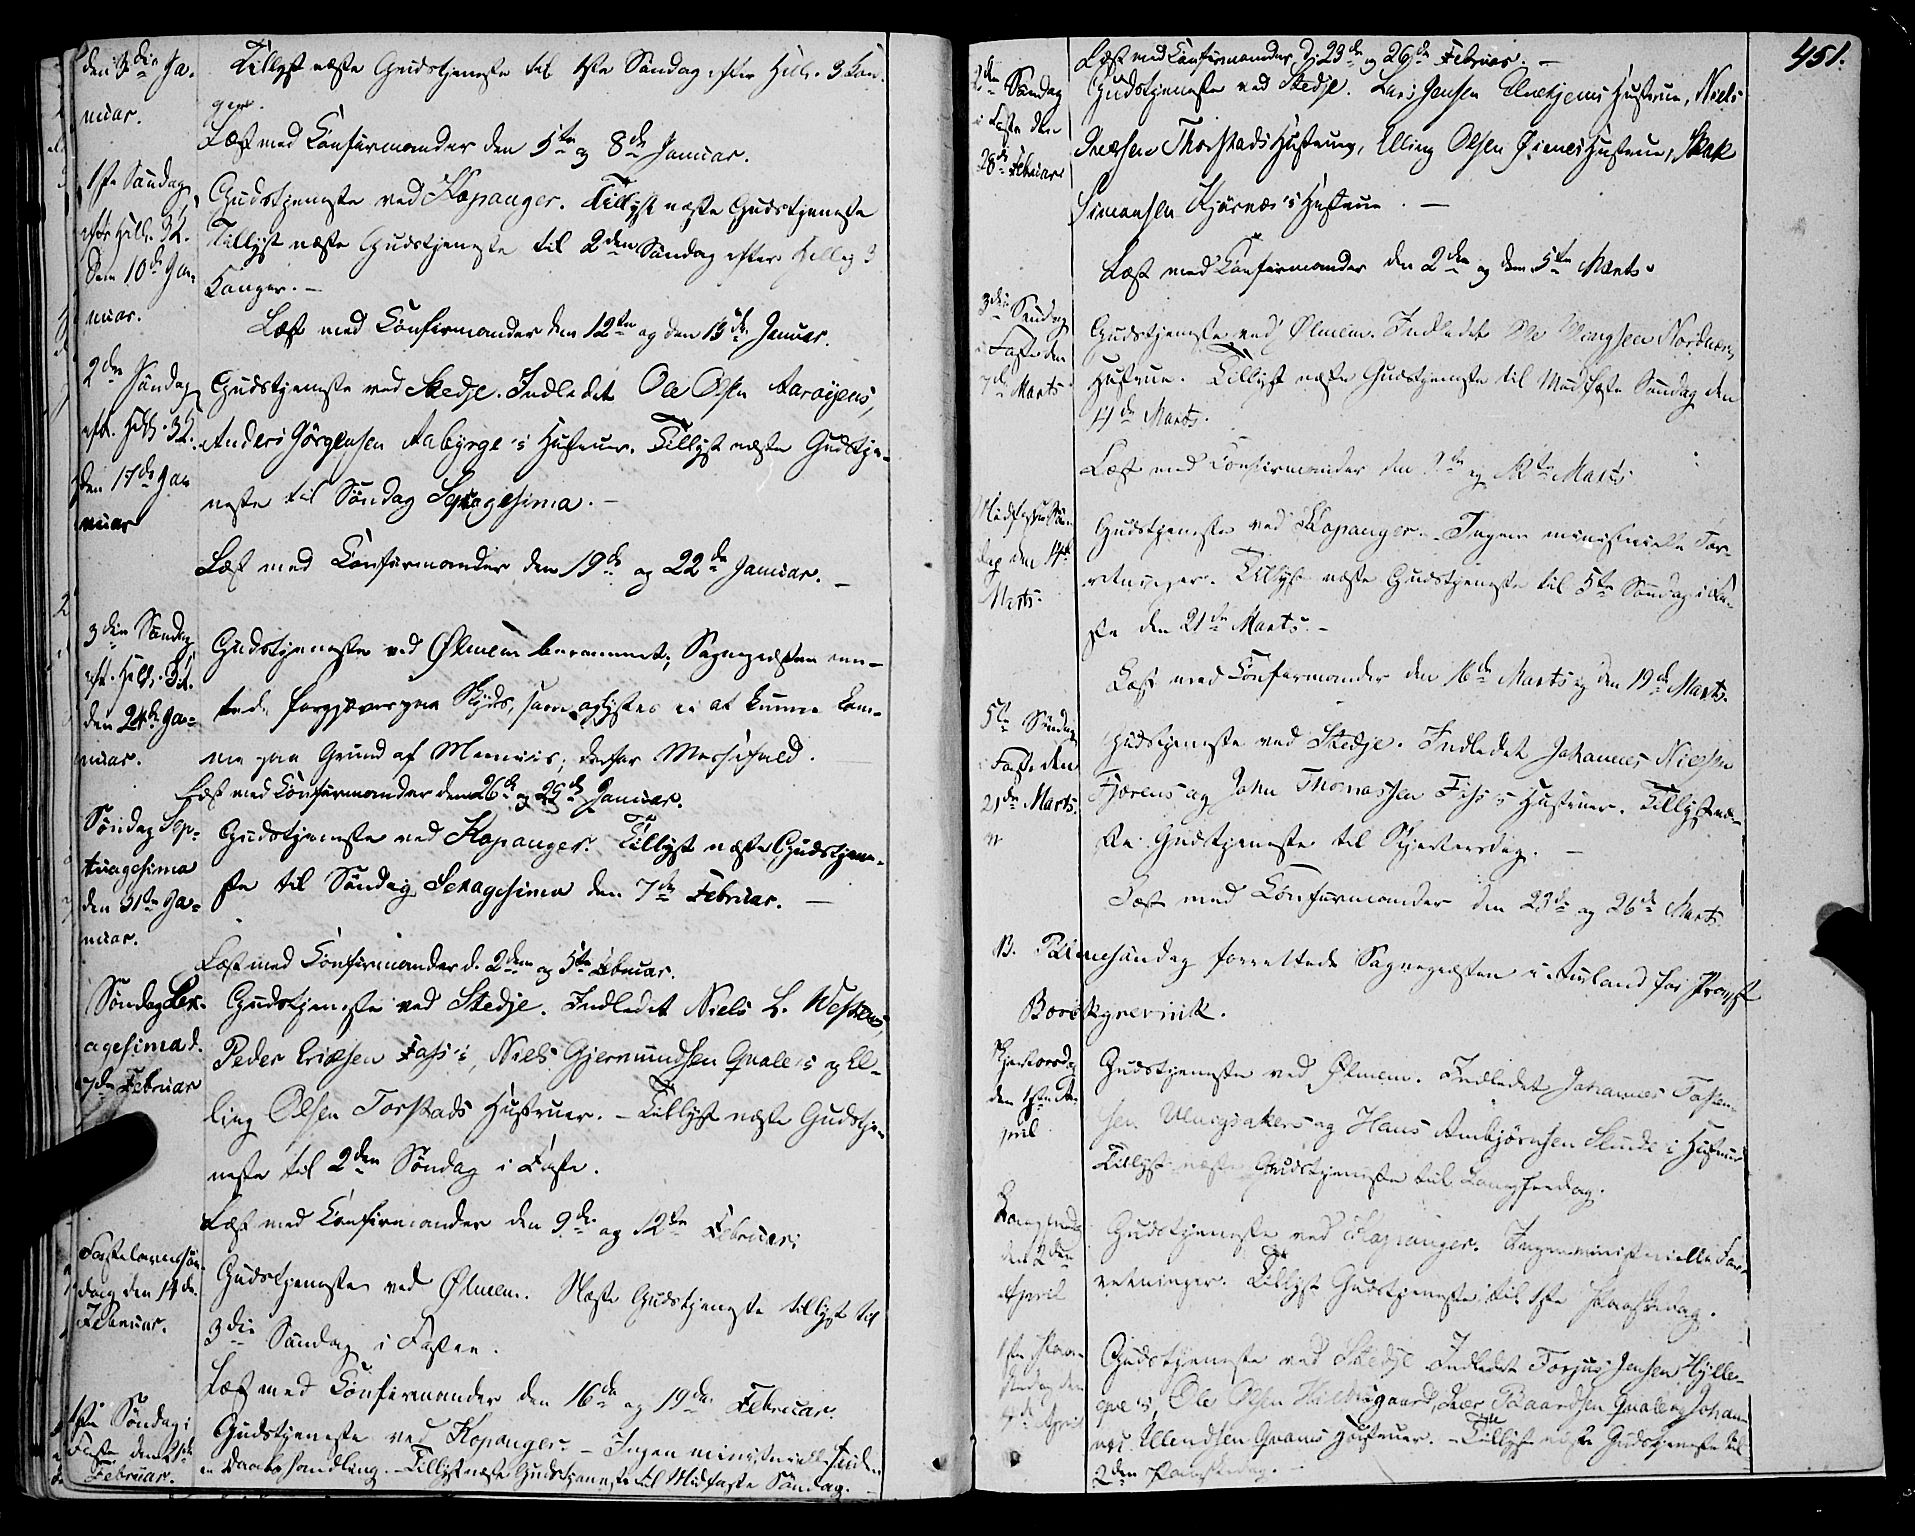 den 3die Ja-
nuar.
Tillyst næste Gudstjeneste til 1ste Søndag efter Hell. 3 Kon-
ger.
Læst med Confirmander den 5te og 8de Januar.
1ste Søndag
efter Hell. 3K.
Den 10de Ja-
nuar.
Gudstjeneste ved Kopanger. Tillyst næste Gudstjeneste
Tillyst næste Gudstjeneste til 2den Søndag efter Hellig 3
Konger. –
Læst med Confirmander den 12te og den 15de Januar.
2den Søndag
eft. Hell. 3K.
den 17de Ja-
nuar
Gudstjeneste ved Stedje. Indledet Ole Olsen Aarøyens,
Anders Jørgensen Aabyrge's Hustruer. Tillyst næste Gudstje-
neste til Søndag Septuagesima. –
Læst med Confirmander den 19de og 22de Januar. –
3die Søndag
eft. Hell. 3K.
den 24de Ja-
nuar.
Gudstjeneste ved Ølmem berammet; Sognepræsten ven-
tede forgjæves paa Skyds, som ei at kunne kom-
me paa Grund af ; derfor Messefald.
Læst med Confirmander den 26de og 29de Januar.
Søndag Sep-
tuagesima
den 31te Ja-
nuar.
Gudstjeneste ved Kopanger. Tillyst næste Gudstjene-
ste til Søndag Sexagesima den 7de Februar. –
Læst med Confirmander d. 2den og 5te Februar.
Søndag Sex-
agesima d.
7de Februar
Gudstjeneste ved Stedje. Indledet Niels L.
Peder Fahs's, Niels Gjermundsen Quale's og El-
ling Olsen Torstads Hustruer. – Tillyst næste Gudstje-
neste til 2den Søndag i Faste.
Læst med Confirmander den 9de og 12te Februar.
Fastelavnssøn-
dag den 14de
Februar.
Gudstjeneste ved Ølmem. Næste Gudstjeneste tillyst til
3die Søndag i Fasten.
Læst med Confirmander den 16de og 19de Februar.
1ste Søndag i
Faste den 21de
Februar.
Gudstjeneste ved Kopanger. – Ingen ministeriell uden
en Daabshandling. – Tillyst næste Gudstjeneste til Midfaste Søndag. –
451.
Læst med Confirmander d. 23de og 26de Februar. –
2den Søndag
i Faste den
28de Februar
Gudstjeneste ved Stedje. Lars Jensen Hustrue, Niels
Thorstads Hustrue, Elling Olsen Øienes Hustrue,
Simonsen Kjørnæs's Hustrue. –
Læst med Confirmander den 2den og den 5te Marts.
3die Søndag
i Faste den
7de Marts
Gudstjeneste ved Ølmem. Indledet Ole Nordnæs
Hustrue. Tillyst næste Gudstjeneste til Midfaste Søndag den
14de Marts.
Læst med Confirmander den 9de og 12te Marts
Midfaste Søn-
dag den 14de
Marts.
Gudstjeneste ved Kopanger. – Ingen ministerielle For-
retninger. Tillyst næste Gudstjeneste til 5te Søndag i Fa-
ste den 21de Marts. –
Læst med Confirmander den 16de Marts og den 19de Marts.
5te Søndag
i Faste den
21de Marts.
Gudstjeneste ved Stedje. Indledet Johannes Nielsen
Fjærens og John Thomassen Hustruer. Tillyst næ-
ste Gudstjeneste til Skjertorsdag. –
Læst med Confirmander den 23de og 26de Marts.
Palmesøndag forrettede Sognepræsten i Aurland for Provst
Skjertorsdag
den 1ste A-
pril
Gudstjeneste ved Ølmem. Indledet Johannes
sen og Hans Ambjørnsen Hustruer
Tillyst næste Gudstjeneste til Langfredag.
Langfredag
den 2den
April
Gudstjeneste ved Kopanger. Ingen ministerielle For-
retninger. Tillyst Gudstjeneste til 1ste Paaskedag.
1ste Paa-
skedag den
4de April
Gudstjeneste ved Stedje. Indledet Torjus Jensen
Ole Olsen Baardsen Quale og Johan-
nes Hustruer. – Tillyst næste Gudstjeneste til
2den Paaskedag. –